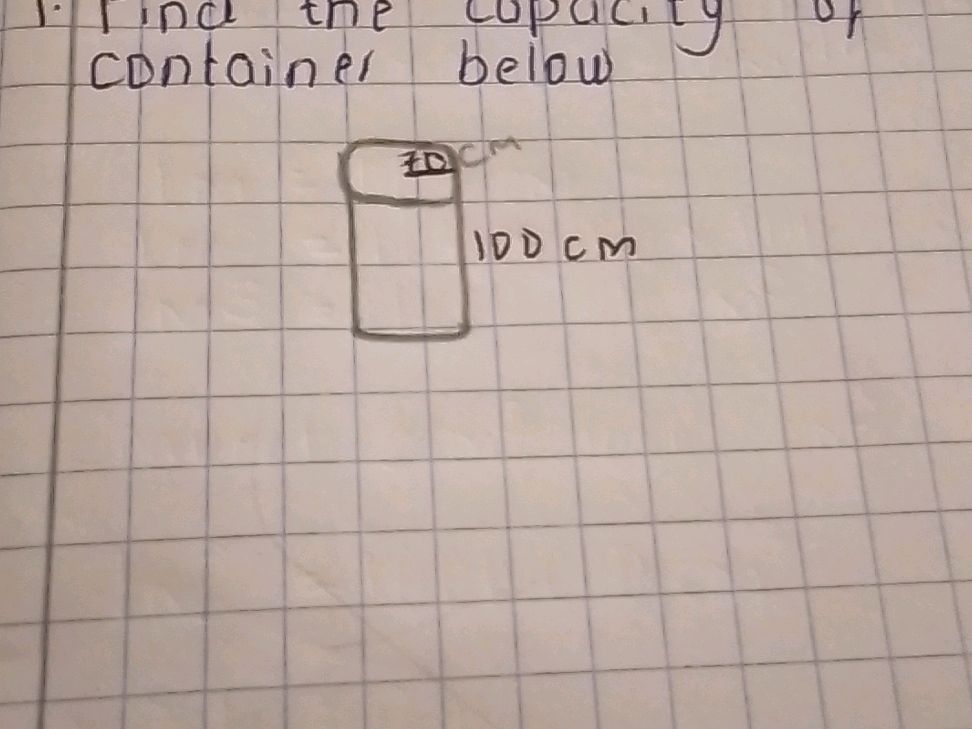 1. Find the capacity of
container below
70 cm
100 cm